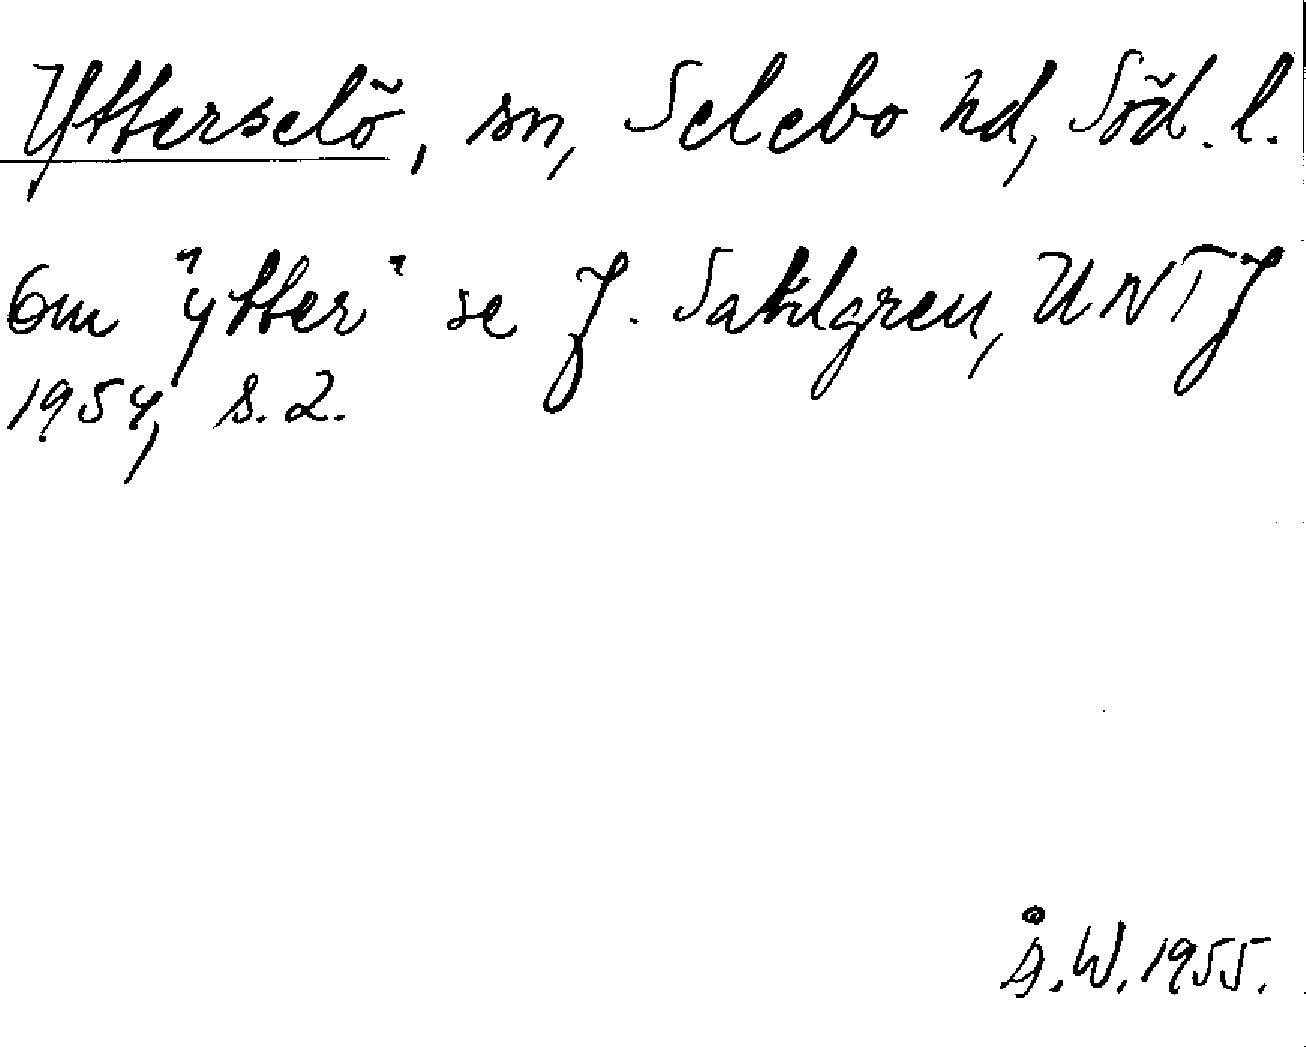 Ytterselö, sn, Selebo hd, Söd. l.
Om "ytter" se J. Sahlgren, UNTJ
1954, s. 2.
Å. W. 1955.